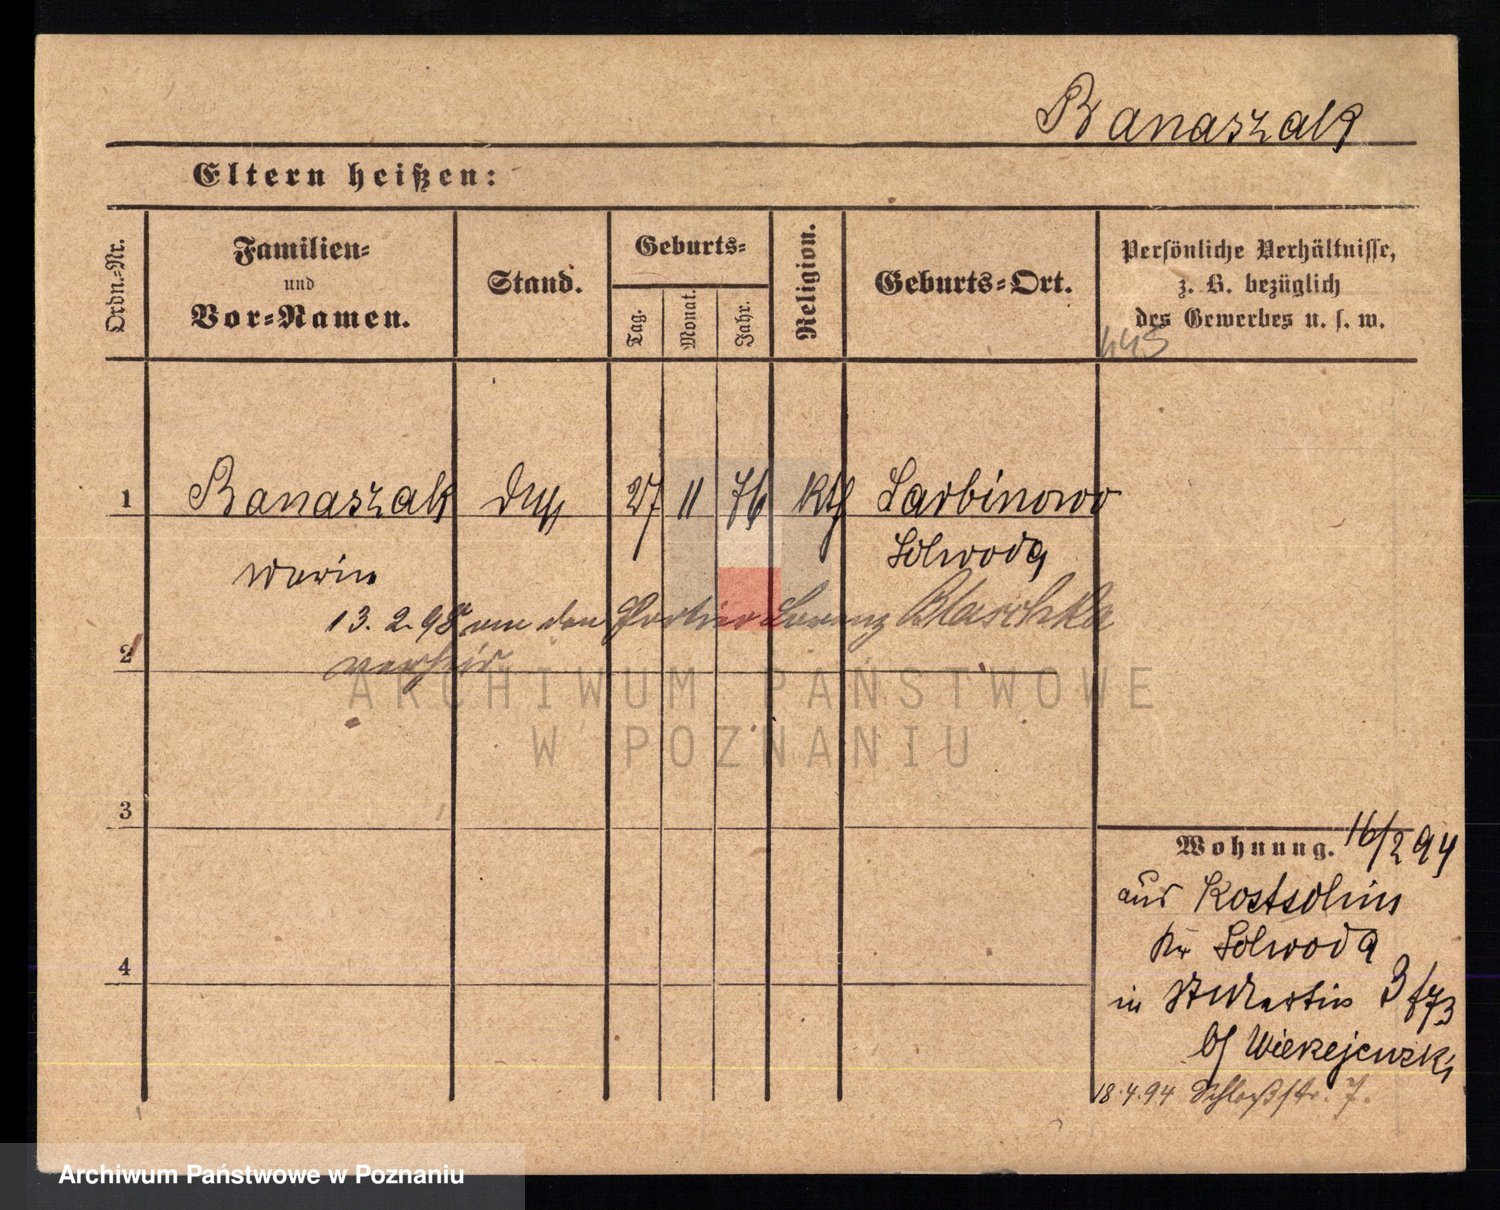 Banaszak
Eltern heißen:
Ordn.-Nr.
Familien-
und
Vor-Namen.
Stand.
Geburts-
Tag.
Monat.
Jahr.
Religion.
Geburts-Ort.
Persönliche Verhältnisse,
z. B. bezüglich
des Gewerbes u. s. w.
445
1 Banaszak 27 11 76 Kth Sarbinowo
Marie Schroda
13. 2. 98 den Portier Lorenz Blaschka
2 verheir
ARCHIWUM PAŃSTWOWE
W POZNANIU
3
Wohnung. 16/2 94
aus Kostschin
Kr Schroda
4
in St Martin 3/73
b/
18.4.94 Schloßstr. 7.
Archiwum Państwowe w Poznaniu